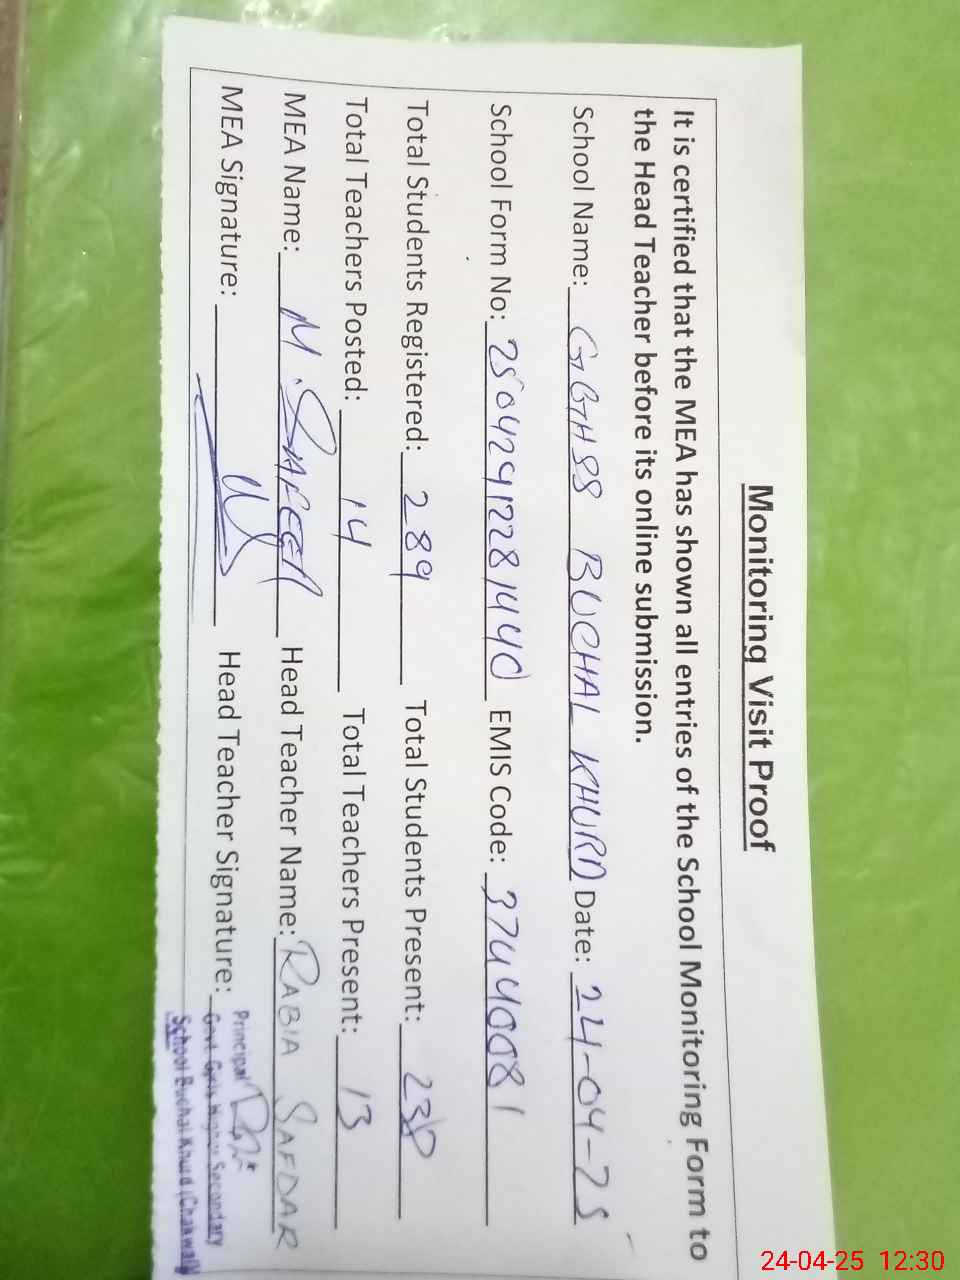 Monitoring Visit Proof
It is certified that the MEA has shown all entries of the School Monitoring Form to
the Head Teacher before its online submission.
School Name: GGHSS BUCHAL KHURD Date: 24-04-25
School Form No: 25042412281440 EMIS Code: 37440081
Total Students Registered: 289 Total Students Present: 238
Total Teachers Posted: 14 Total Teachers Present: 13
MEA Name: M. SAFEER Head Teacher Name: RABIA SAFDAR
MEA Signature: Head Teacher Signature:
Principal
Govt. Girls Higher Secondary
School Buchal Khurd (Chakwal)
24-04-25 12:30